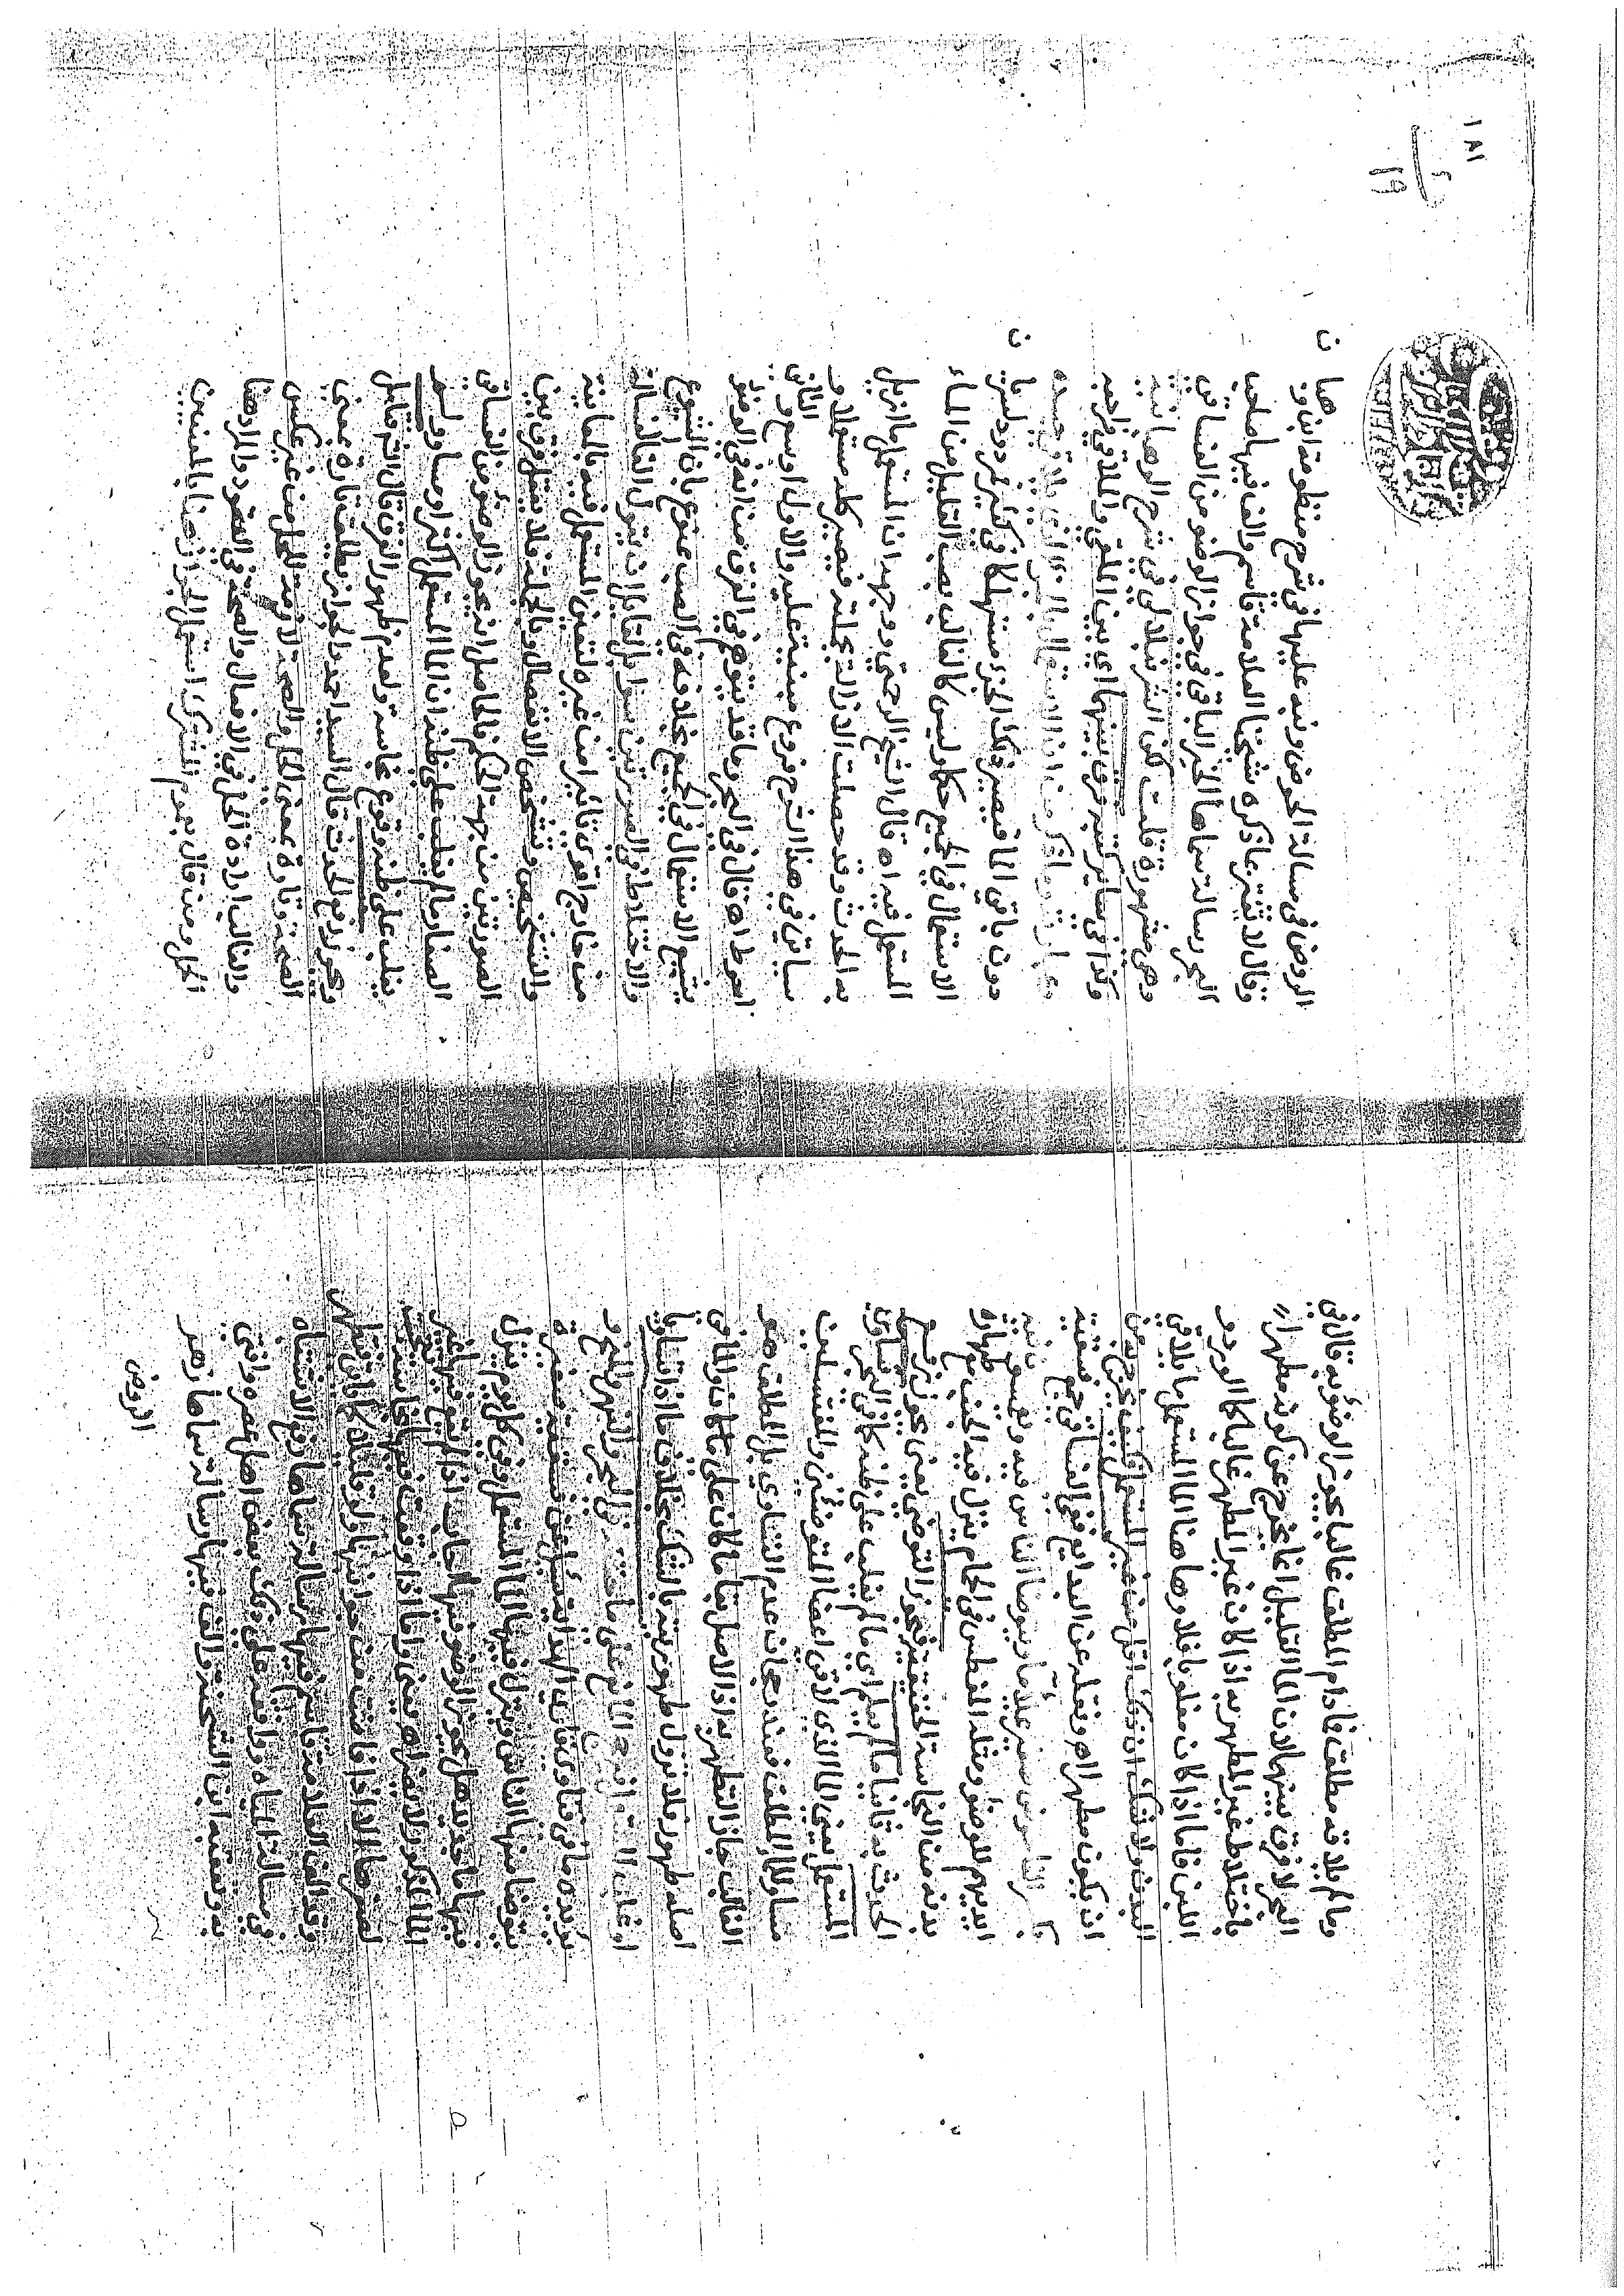 وما لم يلاقه مطلق فما دام المطلق غالبا يجوز الوضوء به قال في
البحر لا فرق بينهما لان الماء القليل انما يخرج عن كونه مطهرا
باختلاط غير المطهر به اذا كان غير المطهر غالبا كماء الورد و
اللبن فاما اذا كان مغلوبا فلا وها هنا الماء المستعمل ما يلاقي
البدن ولا شك ان ذلك اقل من غير المستعمل فكيف يخرج به من
ان يكون مطهرا اه ونقله عن البدايع ففي الفساقي جمع فسقية
يتوضا الناس فيه
اليد منهم للوضوء ومثله المغطس في الحمام ينزل فيه الجنب مع طهارة
بدنه من النجاسة الحقيقية يجوز التوضي يعني يجوز رفع
الحدث به ثانيا ما لم يعلم اي ما لم يغلب على ظنه كما في البحر تساوي
المستعمل يعني الماء الذي لاقى اعضا المتوضئين والمغتسلين
مساو للماء المطلق فعند رجحان عدم التساوي بل المطلق هو
الغالب جاز التطهر به اذ الاصل بقا ما كان على ما كان والماء في
اصله طهور فلا تزول طهوريته بالشك بخلاف ما اذا تساويا
او غلب المستعمل في البحر والنهر والمنح و
يؤيده ما في فتاوى قاري الهداية سئل عن فسقية صغيرة
يتوضا منها الناس وينزل فيها الماء المستعمل وفي كل يوم ينزل
فيها ماء جديد هل يجوز الوضوء منها اجاب اذا لم يقع فيها غير
الماء المذكور لا يضر اه يعني واما اذا وقعت فيها نجاسة تنجست
لصغرها الا اذا فاضت من جوانبها ولو قليلا كما في
وقد الف العلامة قاسم فيها رسالة سماها رفع الاشتباه
في مسالة المياه ووافقه على ذلك بعض اهل عصره وافتى
به وتعقبه ابن الشحنة والف فيها رسالة سماها زهر
الروض
١٨١
١٩
الروض في مسالة الحوض ونبه عليها في شرح منظومة ابن وهبان
وقال لا تغتر بما ذكره شيخنا العلامة قاسم والف فيها صاحب
البحر رسالة سماها الخير الباقي في جواز الوضوء من الفساقي
وهي مشهورة قلت لكن الشرنبلالي في شرح الوهبانية
وكذا في سائر كتبه فرق بينهما اي بين الملقى والملاقي فراجعه
دون باقي الماء فيصير ذلك الجزء مستهلكا في كثير مردود لسريان
الاستعمال في الجميع حكما وليس كالغالب يصب القليل من الماء
المستعمل فيه اه قال الشيخ الرحمتي ووجهه ان المستعمل ما ازيل
به الحدث وقد حصلت الازالة بجملته فيصير كله مستعملا و
سياتي في هذا الشرح فروع مبنية عليه والاول اوسع والثاني
احوط اه قال في البحر وما قد يتوهم في الفرق من انه في الوضوء
يشيع الاستعمال في الجميع بخلافه في الصب ممنوع بان الشيوع
والاختلاط في الصورتين سوا بل لقايل ان يقول القا الغسالة
من خارج اقوى تاثيرا من غيره لتعين المستعمل فيه بالمعاينة
والتشخيص وتشخص الانفصال وبالجملة فلا يعقل فرق بين
الصورتين من جهة الحكم فالحاصل انه يجوز الوضوء من الفساقي
الصغار ما لم يغلب على ظنه ان الماء المستعمل اكثر او مساو ولم
يغلب على ظنه وقوع نجاسة ولعدم ظهور الفرق قال الشارح قابل
وهو رفع الحدث قال السيد احمد الجواز يطلق تارة بمعنى
الصحة وتارة بمعنى الحل والصحة لازمة للحل من غير عكس
والغالب ارادة الحل في الافعال والصحة في العقود والمراد هنا
الحل ومن قال بعموم المشترك استعمل الجواز هنا بالمعنيين